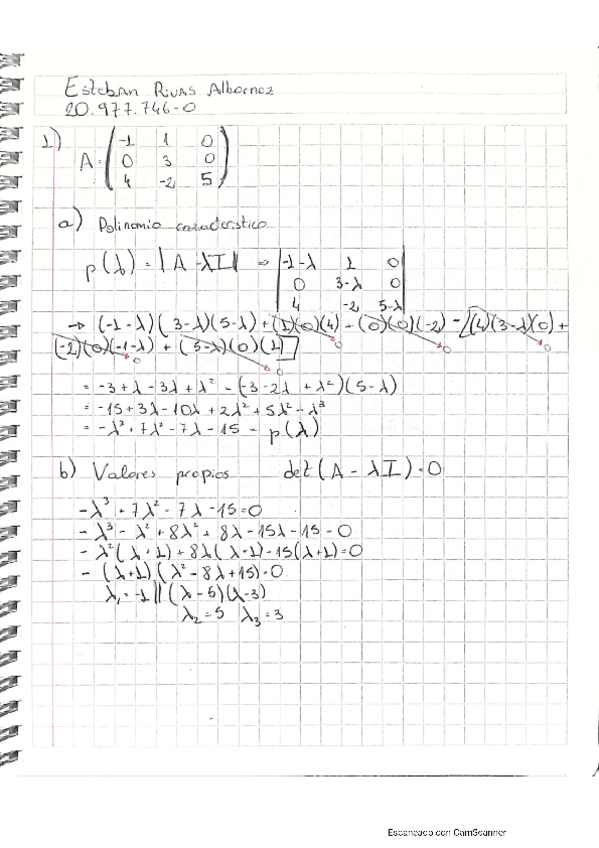 Esteban Rivas Albornoz
20.977.746-0
1) A = (-1 1 0
0 3 0
4 -2 5)
a) Polinomio caracteristico
p(λ) = |A - λI| => |-1-λ 1 0
0 3-λ 0
4 -2 5-λ|
→ (-1-λ)(3-λ)(5-λ) + (1)(0)(4) + (0)(0)(-2) - [(4)(3-λ)(0) +
(-2)(0)(-1-λ) + (5-λ)(0)(1)]
= -3+λ-3λ+λ² = (-3-2λ+λ²)(5-λ)
= -15+3λ-10λ+2λ²+5λ²-λ³
= -λ³+7λ²-7λ-15 = p(λ)
b) Valores propios det(A - λI) = 0
-λ³+7λ²-7λ-15=0
-λ³-λ²+8λ²+8λ-15λ-15=0
-λ²(λ+1)+8λ(λ+1)-15(λ+1)=0
-(λ+1)(λ²-8λ+15)=0
λ₁=-1 || (λ-5)(λ-3)
λ₂=5 λ₃=3
Escaneado con CamScanner